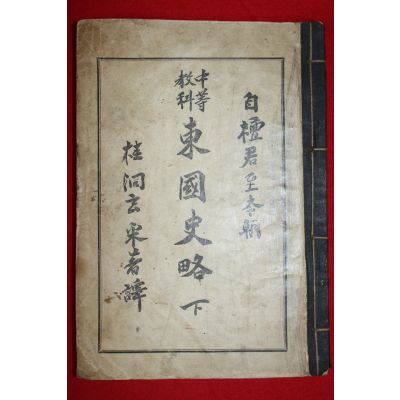 自檀君至本朝
中等
教科
東國史略 下
桂洞玄采著譯